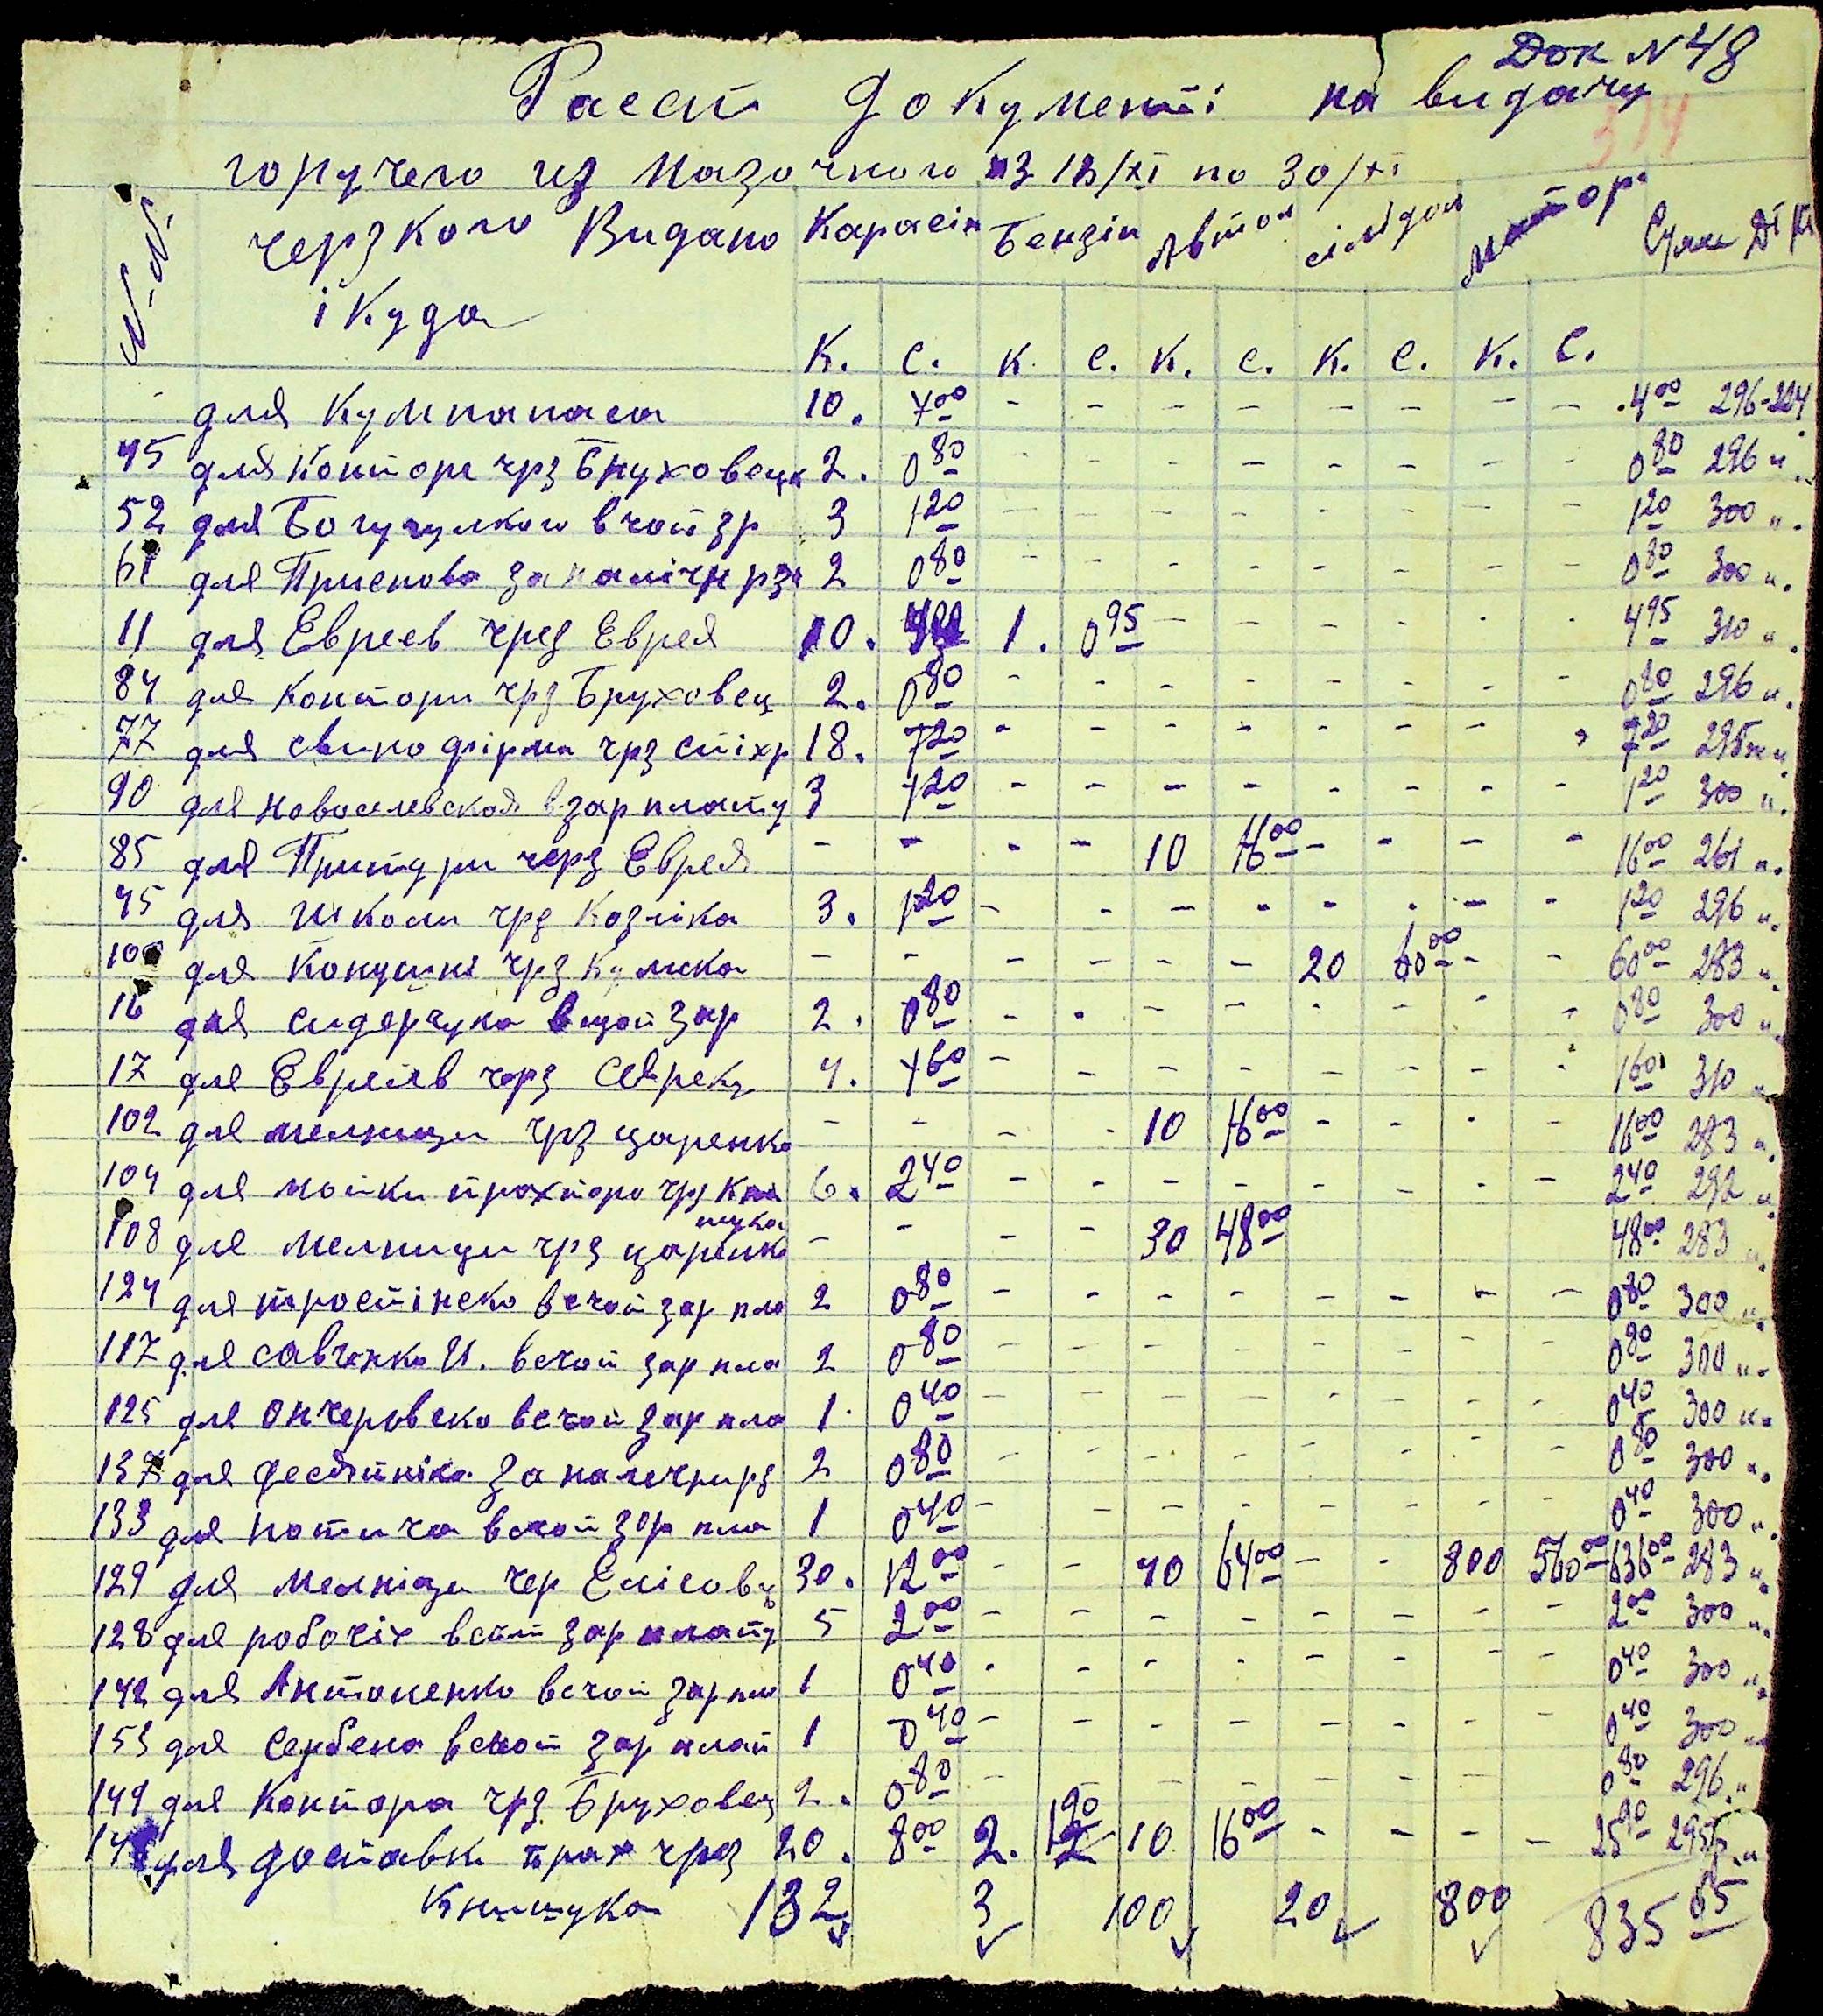 Док N 48
Раест Документі на видачу
314
горучего из Мазочного из 18/XI по 30/XI
N-N. черзкого Видано Карасін Бензін Автол сілідол мотор. Сума Дт Кт
і Куда
К. С. К. С. К. С. К. С. К. С.
для Кумпапаса 10. 4 00 - - - - - - - - 4 00 296-224
45 для Контори чрз Бруховецк 2. 0 80 - - - - - - - - 0 80 296 "
52 для Богуцулкого вчот зр 3 1 20 - - - - - - - - 1 20 300 "
61 для Приспова за налічн рз 2 0 80 - - - - - - - - 0 80 300 "
11 для Евреев чрез Еврея 10. 4 00 1. 0 95 - - - - - - 4 95 310 "
84 для Контори чрз Бруховец 2. 0 80 - - - - - - - - 0 80 296 "
77 для свинофірма чрз Стіхр 18. 7 20 - - - - - - - - 7 20 295 "
90 для Новоселевской в зарплату 3 1 20 - - - - - - - - 1 20 300 "
85 для черз Еврея - - - - 10 16 00 - - - - 16 00 261 "
45 для Школи чрз Козліка 3. 1 20 - - - - - - - - 1 20 296 "
100 для Конушні чрз - - - - - - 20 60 00 - - 60 00 283 "
16 для Сидорчука вщот зар 2. 0 80 - - - - - - - - 0 80 300 "
17 для Евреїв черз 4. 1 60 - - - - - - - - 1 60 310 "
102 для мелници чрз царенко - - - - 10 16 00 - - - - 16 00 283 "
104 для мойки трахтора чрз Кни 6. 2 40 - - - - - - - - 2 40 292 "
шука
108 для Мелници чрз царенко - - - - 30 48 00 48 00 283 "
124 для тростінско в счот зар пла 2 0 80 - - - - - - - - 0 80 300 "
117 для Савченко И. в счот зар пла 2 0 80 - - - - - - - - 0 80 300 "
125 для Ончеровско в счот зар пла 1. 0 40 - - - - - - - - 0 40 300 "
137 для Фесотніка за 2 0 80 - - - - - - - - 0 80 300 "
133 для Потича в счот зор пла 1 0 40 - - - - - - - - 0 40 300 "
129 для Мелніци чер Елісовц 30. 12 00 - - 40 64 00 - - 800 560 00 636 00 283 "
128 для робочіх в счт зар плату 5 2 00 - - - - - - - - 2 00 300 "
142 для Антоненко в счот зар пла 1 0 40 - - - - - - - - 0 40 300 "
153 для Сербена в счот зар плат 1 0 40 - - - - - - - - 0 40 300 "
149 для Контора чрз Бруховец 2. 0 80 - - - - - - - - 0 80 296 "
14 для доставки трах чрз 20. 8 00 2. 1 90 10 16 00 - - - - 25 90 295 "
Книшука 132 3 100 20 800 835 65